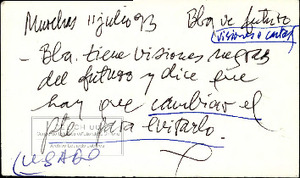 Murchas 11 julio 93 Bla ve futuro
(visiones o cartas)
- Bla. tiene visiones negras
del futuro y dice que
hay que cambiar el
pte para evitarlo.
(USADO